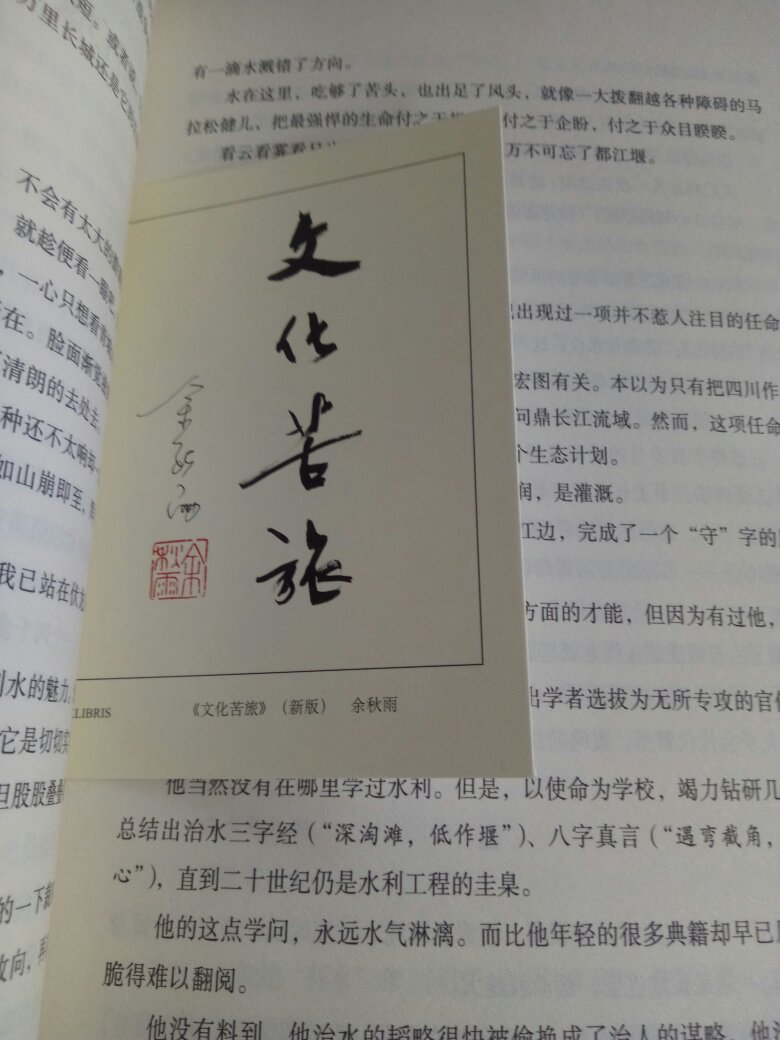 短。或者说
万里长城还是它的
不会有太大的
就趁便看一眼
，一心只想看青
在。脸面渐
清朗的去处
种还不太响却
如山崩即至，
我已站在伏
水的魅力
它是切切实
旦股股叠叠
的一下
改向，再
有一滴水溅错了方向。
水在这里，吃够了苦头，也出足了风头，就像一大拨翻越各种障碍的马
拉松健儿，把最强悍的生命付之于 付之于企盼，付之于众目睽睽。
看云看雾看日出 万不可忘了都江堰。
文化苦旅
余秋雨
余秋雨
LIBRIS 《文化苦旅》（新版） 余秋雨
出现过一项并不惹人注目的任命
宏图有关。本以为只有把四川作
问鼎长江流域。然而，这项任命
个生态计划。
润，是灌溉。
江边，完成了一个“守”字的
方面的才能，但因为有过他，
出学者选拔为无所专攻的官僚
他当然没有在哪里学过水利。但是，以使命为学校，竭力钻研几
总结出治水三字经（“深淘滩，低作堰”）、八字真言（“遇弯截角，
心”），直到二十世纪仍是水利工程的圭臬。
他的这点学问，永远水气淋漓。而比他年轻的很多典籍却早已
脆得难以翻阅。
他没有料到，他治水的韬略很快被偷换成了治人的谋略。他没